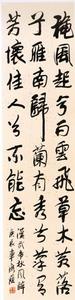 秋風起兮白雲飛草木黃落
兮雁南歸蘭有秀兮菊有
芳懷佳人兮不能忘
漢武帝秋風辭